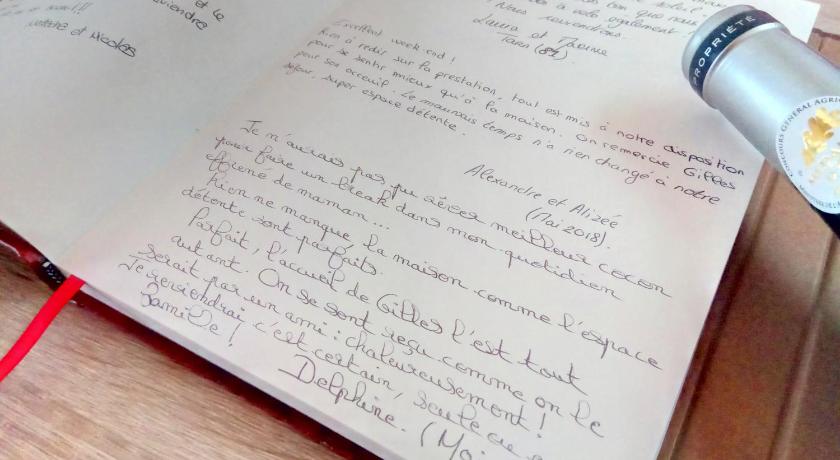 et le
Nathalie et Nicolas
Nous reviendrons.
Laura et
Tarn (81)
Excellent week-end !
Rien à redire sur la prestation, tout est mis à notre disposition
pour se sentir mieux qu'à la maison. On remercie Gilles
pour son accueil. Le mauvais temps n'a rien changé à notre
séjour. Super espace détente.
Alexandre et Alizée
(Mai 2018).
Je n'aurais pas pu rêver meilleur cocon
pour faire un break dans mon quotidien
effréné de maman...
Rien ne manque, la maison comme l'espace
détente sont parfaits.
Parfait, l'accueil de Gilles l'est tout
autant. On se sent reçu comme on le
serait par un ami : chaleureusement !
Je reviendrai c'est certain, seule ou
famille !
Delphine. (Ma
PROPRIÉTÉ
CONCOURS GÉNÉRAL AGRI